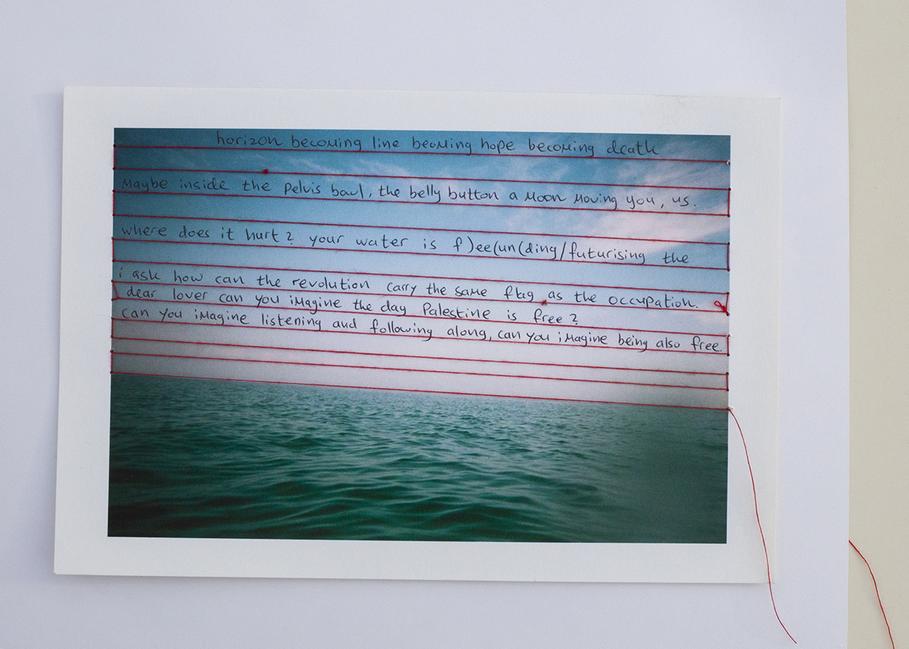 horizon becoming line becoming hope becoming death
Maybe inside the pelvis bowl, the belly button a Moon Moving you, us.
where does it hurt? your water is f)ee(un(ding/futurising the
i ask how can the revolution carry the same flag as the occupation.
dear lover can you iMagine the day Palestine is free?
can you iMagine listening and following along, can you iMagine being also free.